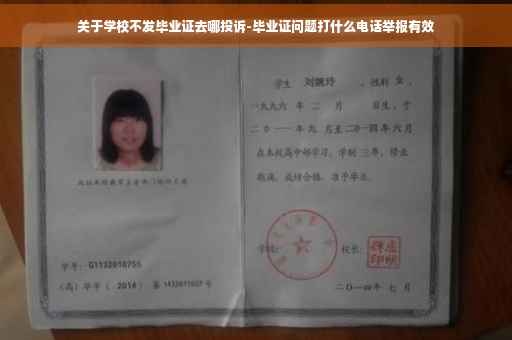 关于学校不发毕业证去哪投诉-毕业证问题打什么电话举报有效
学生 刘婉玲 ，性别 女 ，
一九九六 年 二 月 日生，于
二０一一 年 九 月至 二０一四 年 六 月
在本校高中部学习，学制 三 年，修业
期满，成绩合格，准予毕业。
学校： 校长：
学号： G1132010755
（高）毕字（ 2014 ）第 1432011027 号
二〇一四年 七 月